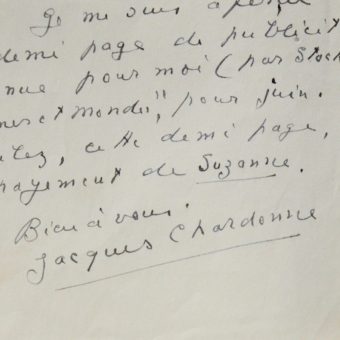 Je me suis aperçu
demi page de publicit
nue pour moi (par Stock
mer et monde", pour juin.
utez, cette demi page,
payement de Suzanne.
Bien à vous.
Jacques Chardonne